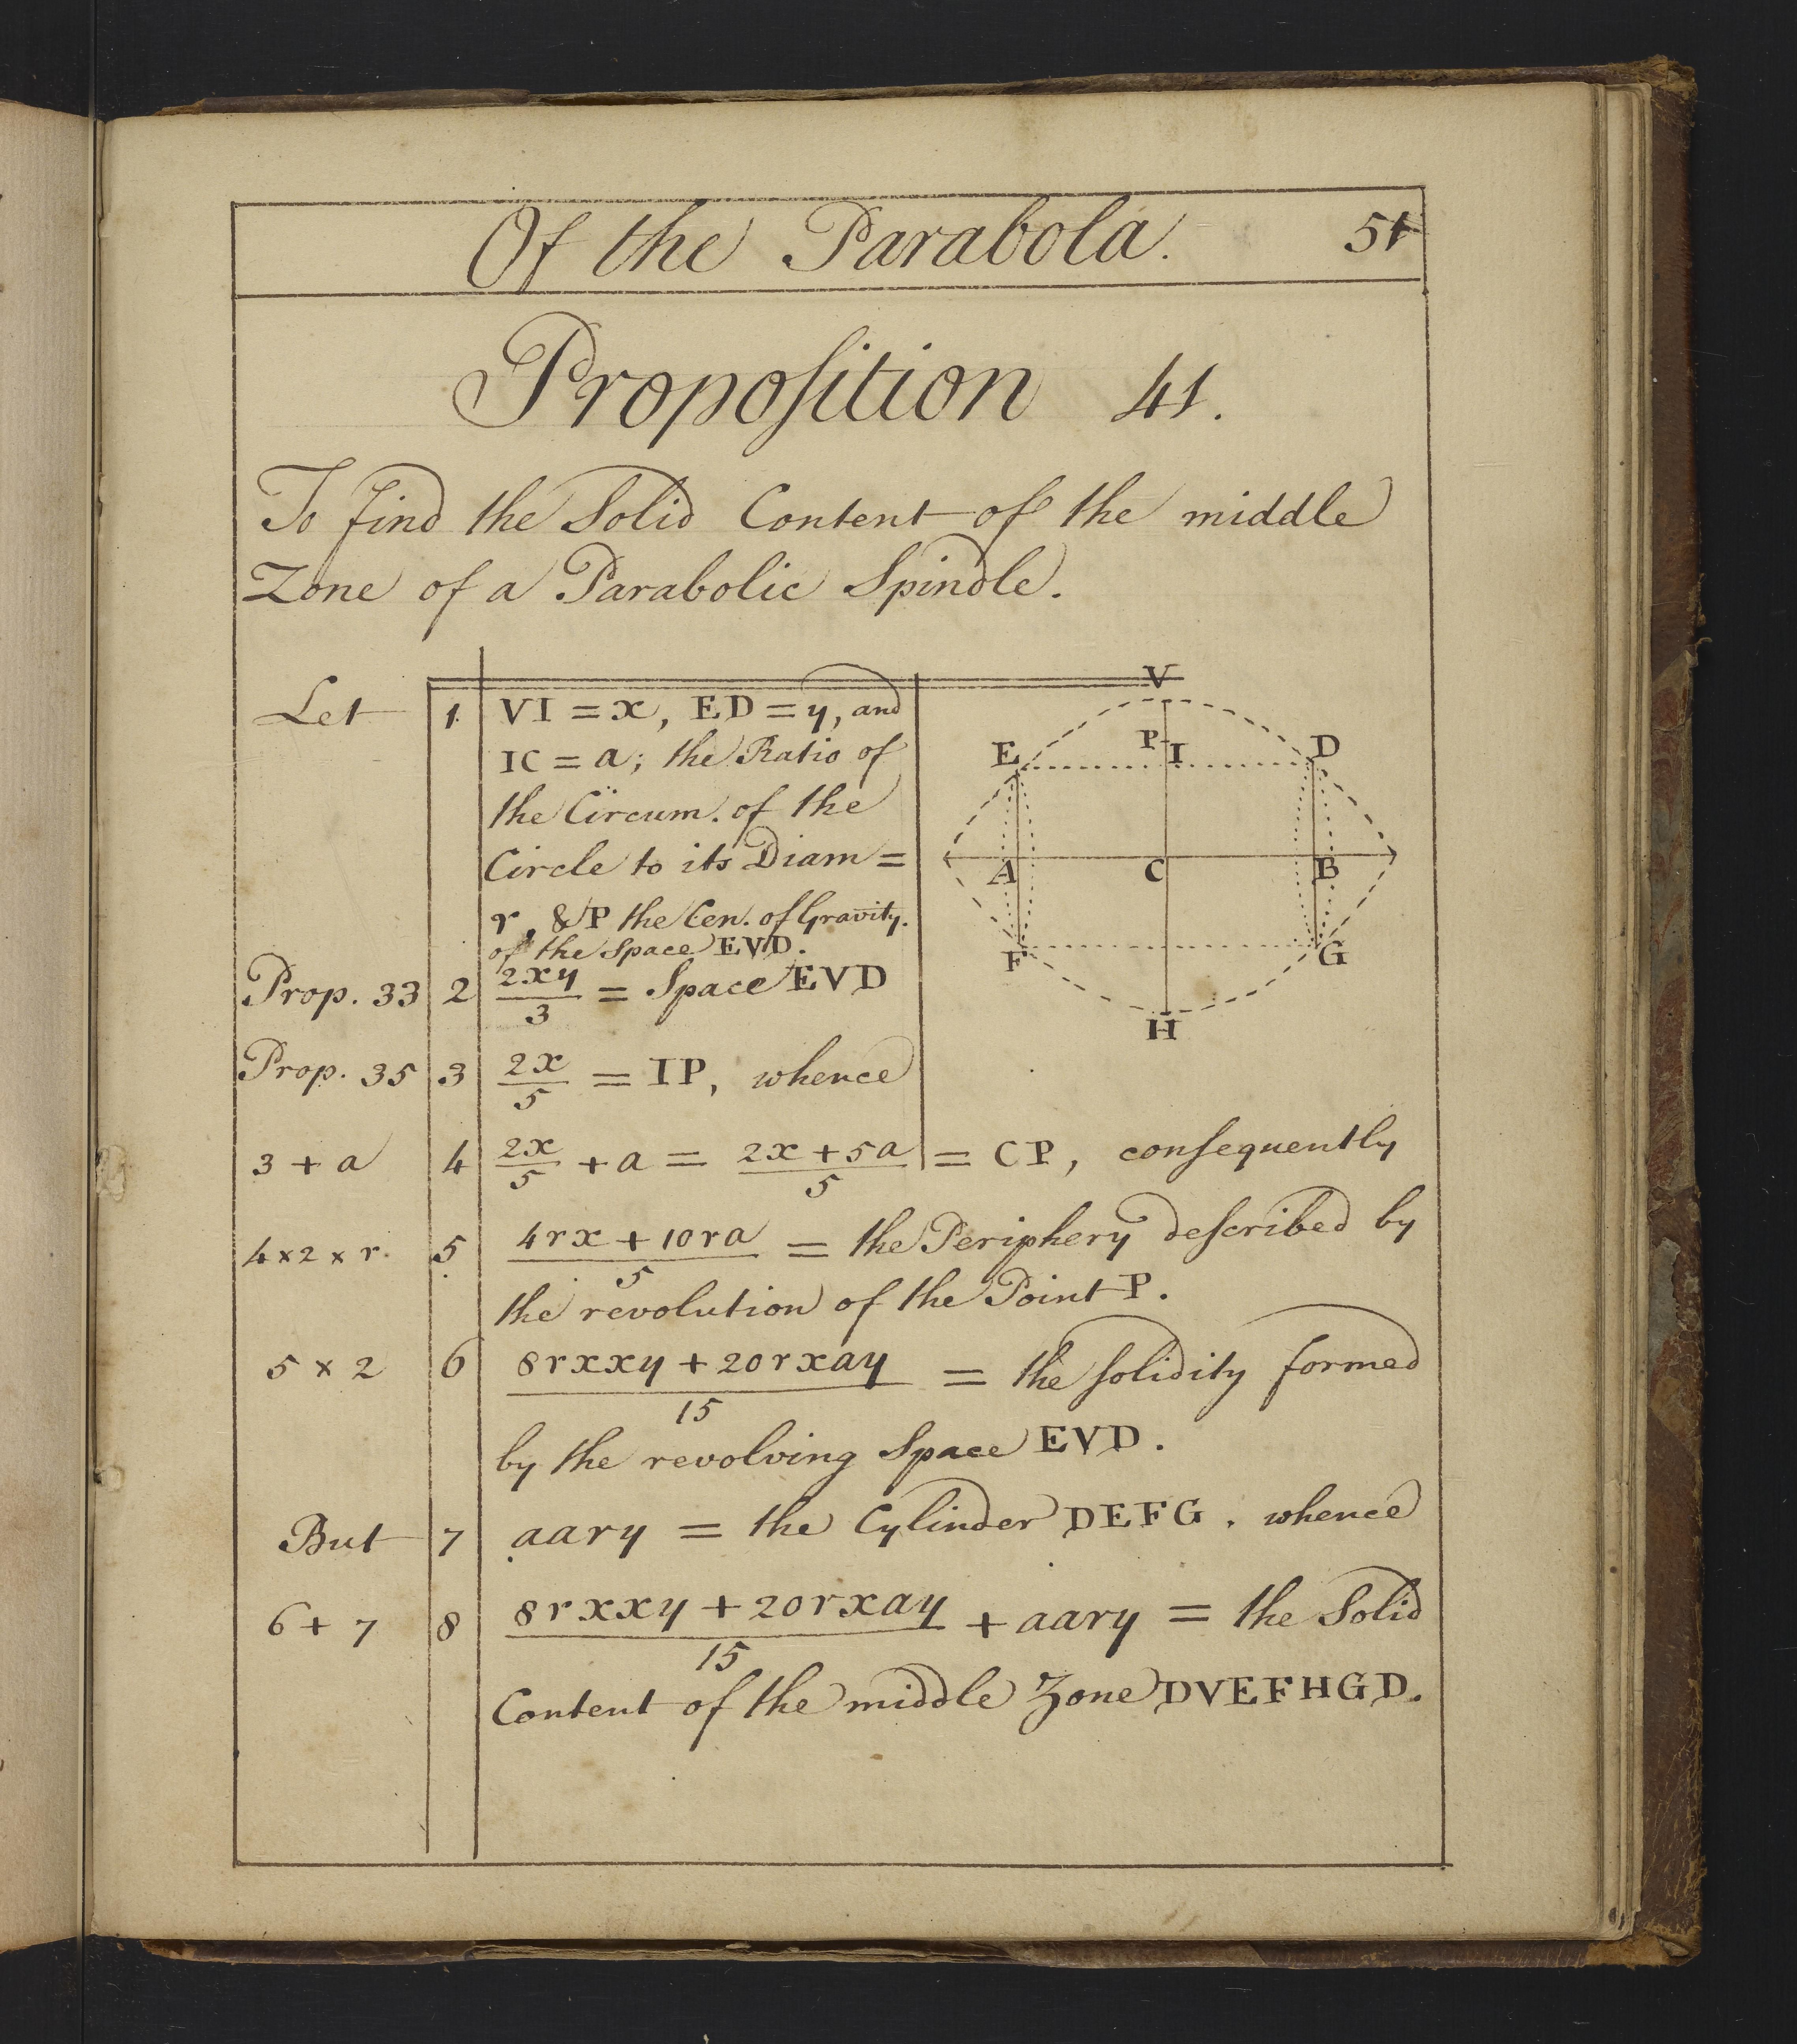 Of the Parabola. 51
Propoſition 41.
To find the Solid Content of the middle
Zone of a Parabolic Spindle.
Let 1. VI = x, ED = y, and
IC = a; the Ratio of
the Circum. of the
Circle to its Diam =
r, & P the Cen. of Gravity.
of the Space EVD.
Prop. 33 2 2xy/3 = Space EVD
Prop. 35 3 2x/5 = IP, whence
3 + a 4 2x/5 + a = 2x + 5a/5 = CP, conſequently
4 × 2 × r. 5 4rx + 10ra/5 = the Periphery deſcribed by
the revolution of the Point P.
5 × 2 6 8rxxy + 20rxay/15 = the ſolidity formed
by the revolving Space EVD.
But 7 aary = the Cylinder DEFG, whence
6 + 7 8 8rxxy + 20rxay/15 + aary = the Solid
Content of the middle Zone DVEFHGD.
V
P I
E D
A C B
F G
H